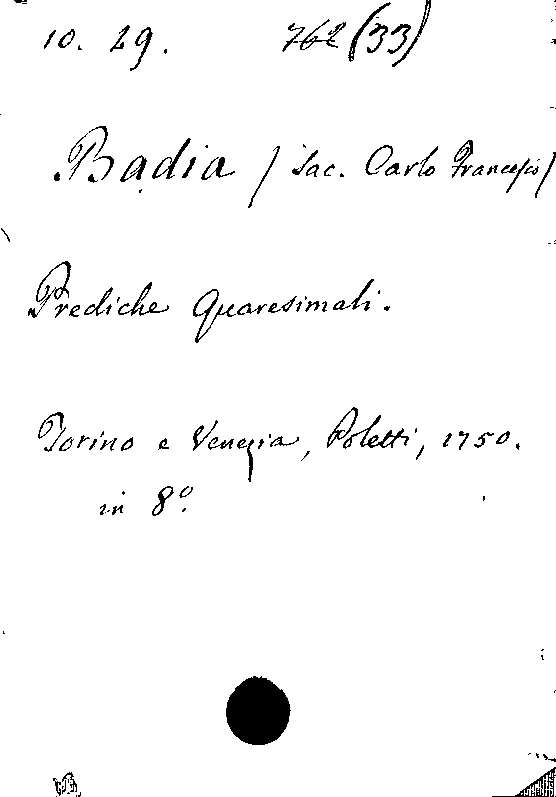 10. 29. 762 (33)
Badia / Sac. Carlo Francesco /
Prediche Quaresimali.
Torino e Venezia, Poletti, 1750.
in 8º.